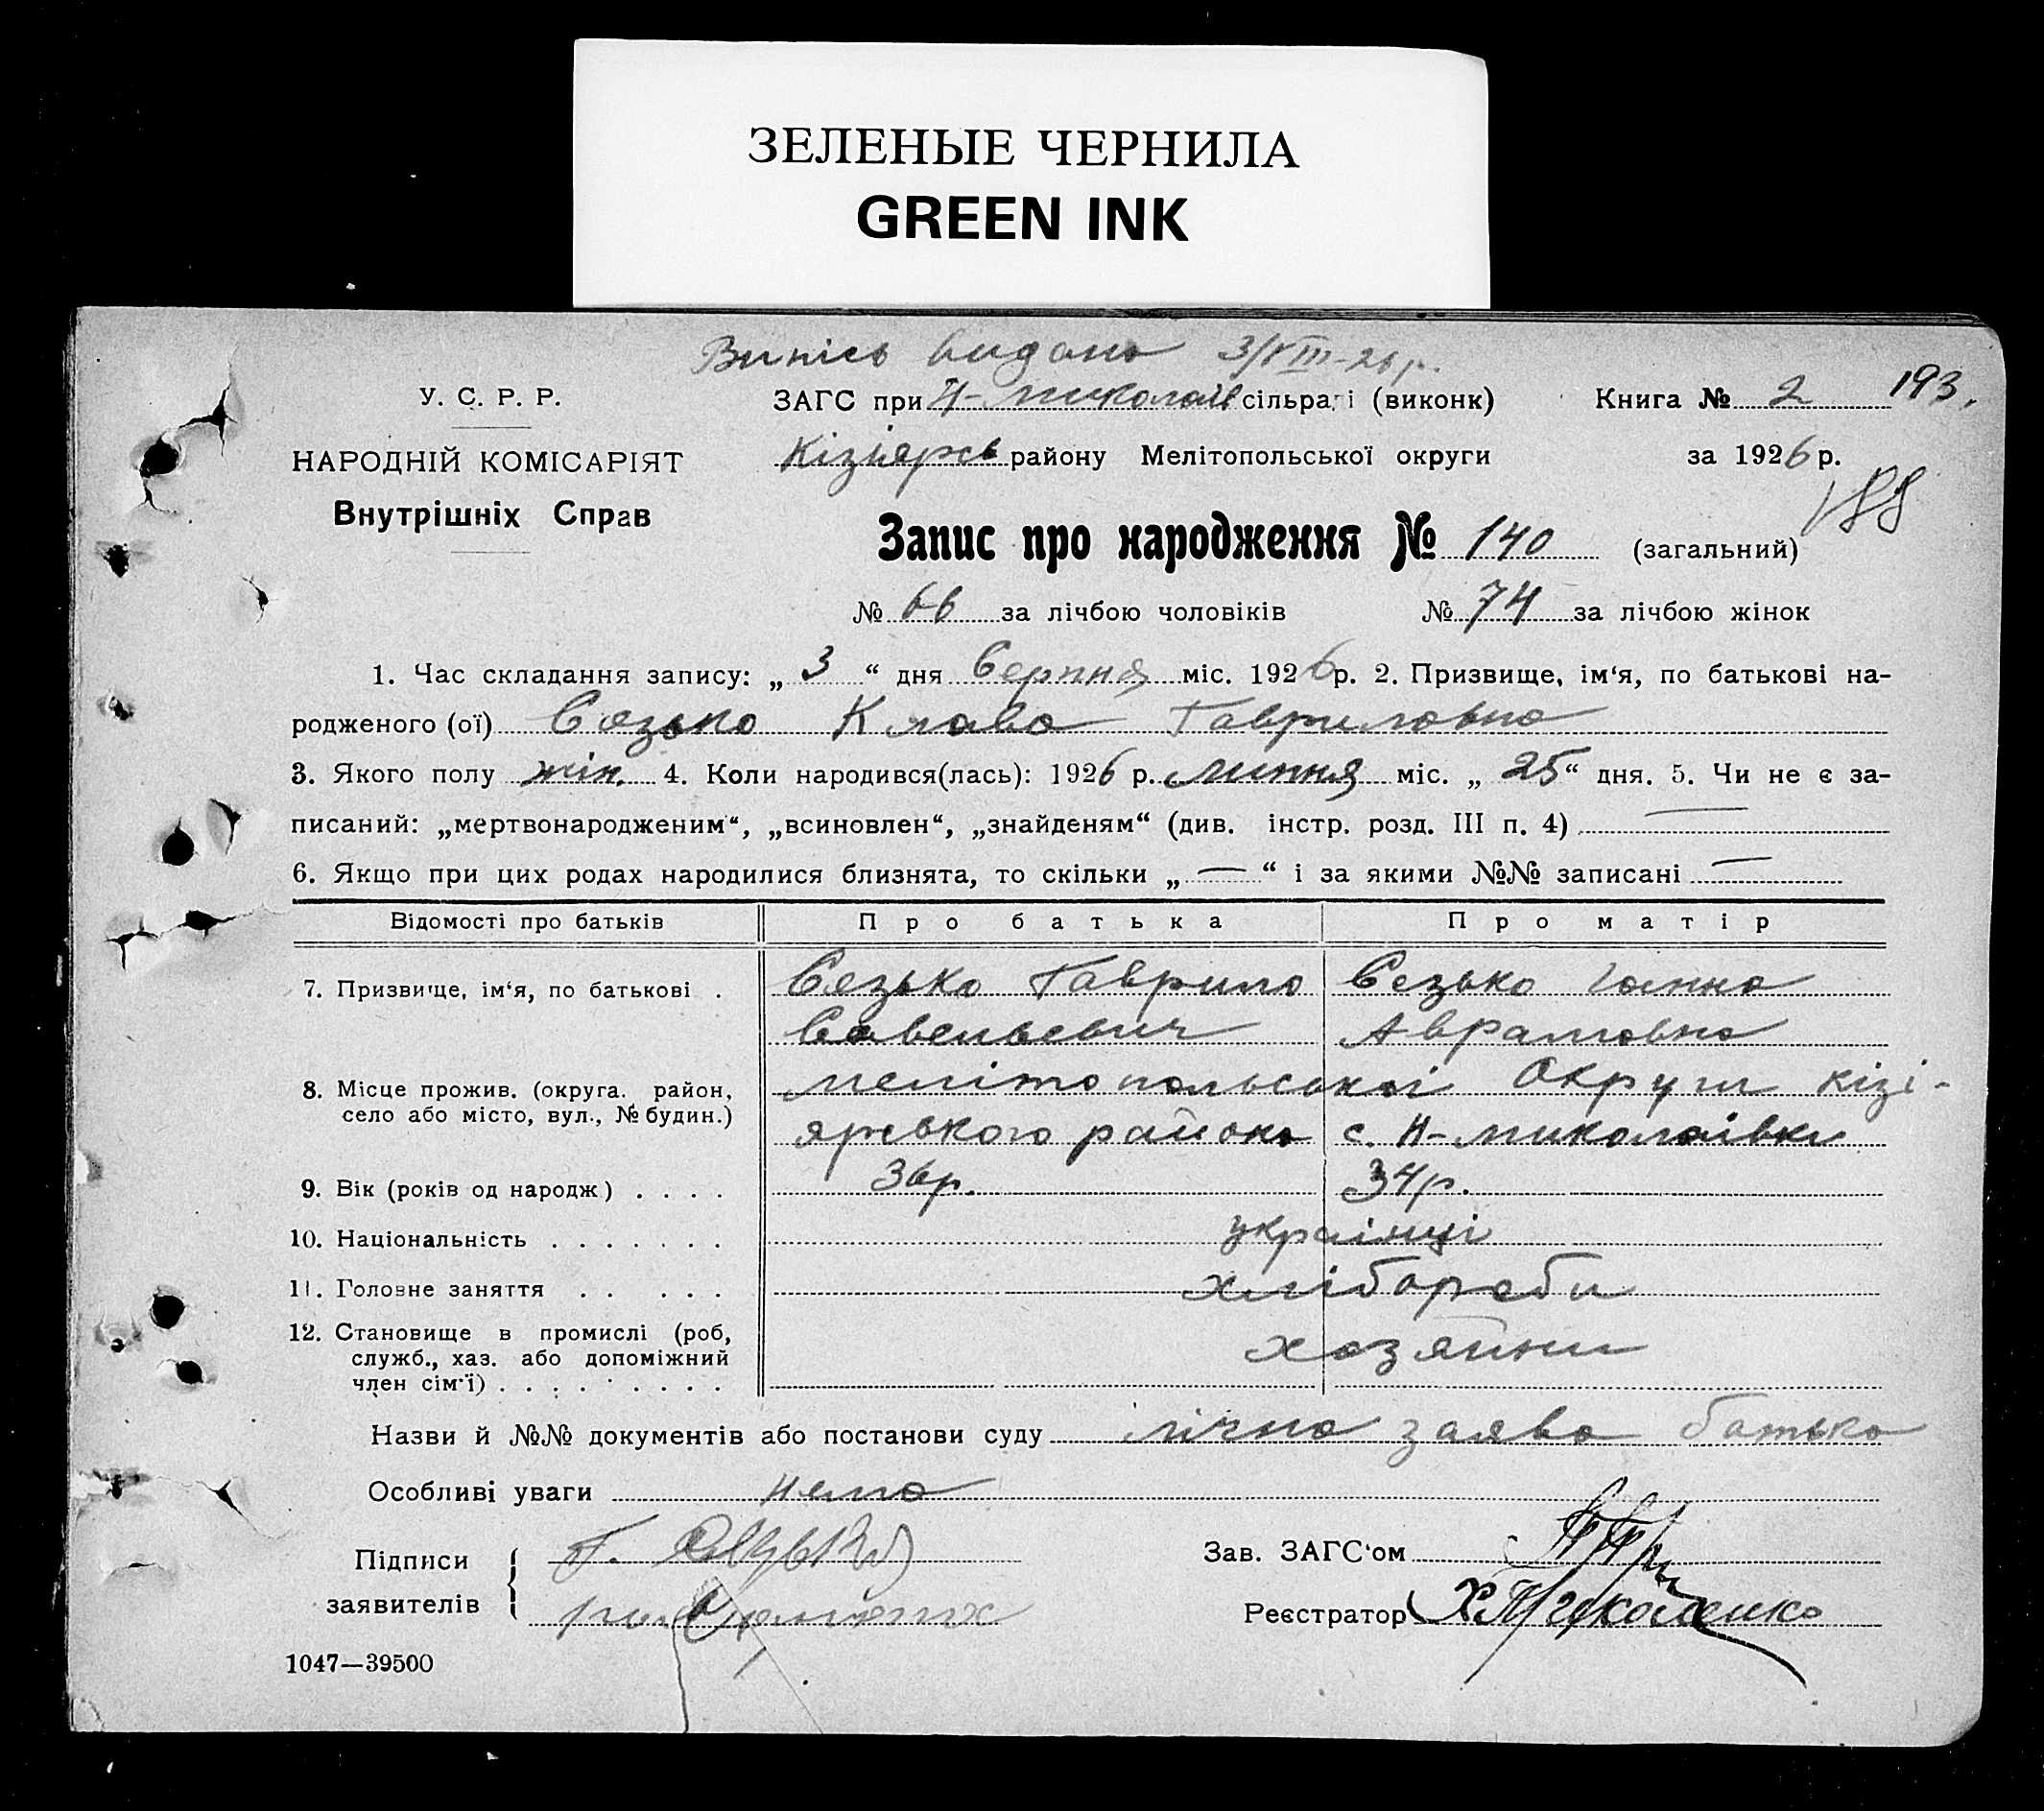 ЗЕЛЕНЫЕ ЧЕРНИЛА
GREEN INK
Випісь видано 3/VIII-26 р.
У. С. Р. Р.
ЗАГС при Н-Миколаїв сільраді (виконк)
Книга № 2
193.
НАРОДНІЙ КОМІСАРІЯТ
Кізіярсь району Мелітопольської округи
за 1926 р.
Внутрішніх Справ
188
Запис про народження № 140 (загальний)
№ 66 за лічбою чоловіків № 74 за лічбою жінок
1. Час складання запису: „ 3 “ дня Серпня міс. 1926 р. 2. Призвище, ім‘я, по батькові на-
родженого (ої) Сезько Клава Гавриловна
3. Якого полу жін. 4. Коли народився(лась): 1926 р. липня міс. „ 25 “ дня. 5. Чи не є за-
писаний: „мертвонародженим“, „всиновлен“, „знайденям“ (див. інстр. розд. III п. 4) —
6. Якщо при цих родах народилися близнята, то скільки „ — “ і за якими №№ записані —
Відомості про батьків Про батька Про матір
7. Призвище, ім‘я, по батькові . Сезько Гаврило Сезько Ганна
Савельевич Аврамовна
8. Місце прожив. (округа. район, мелітопольської Округи кізі-
село або місто, вул., № будин.) ярського района с. Н-миколаівки
9. Вік (років од народж) . . . . 36р. 34р.
10. Національність . . . . . . . українці
11. Головне заняття . . . . . хлібороби
12. Становище в промислі (роб, хозяйни
служб., хаз. або допоміжний
член сім‘ї) . . . . . . . . .
Назви й №№ документів або постанови суду лічна заява батька
Особливі уваги нема
Підписи Г.
заявителів
Зав. ЗАГС‘ом
Реєстратор
1047—39500